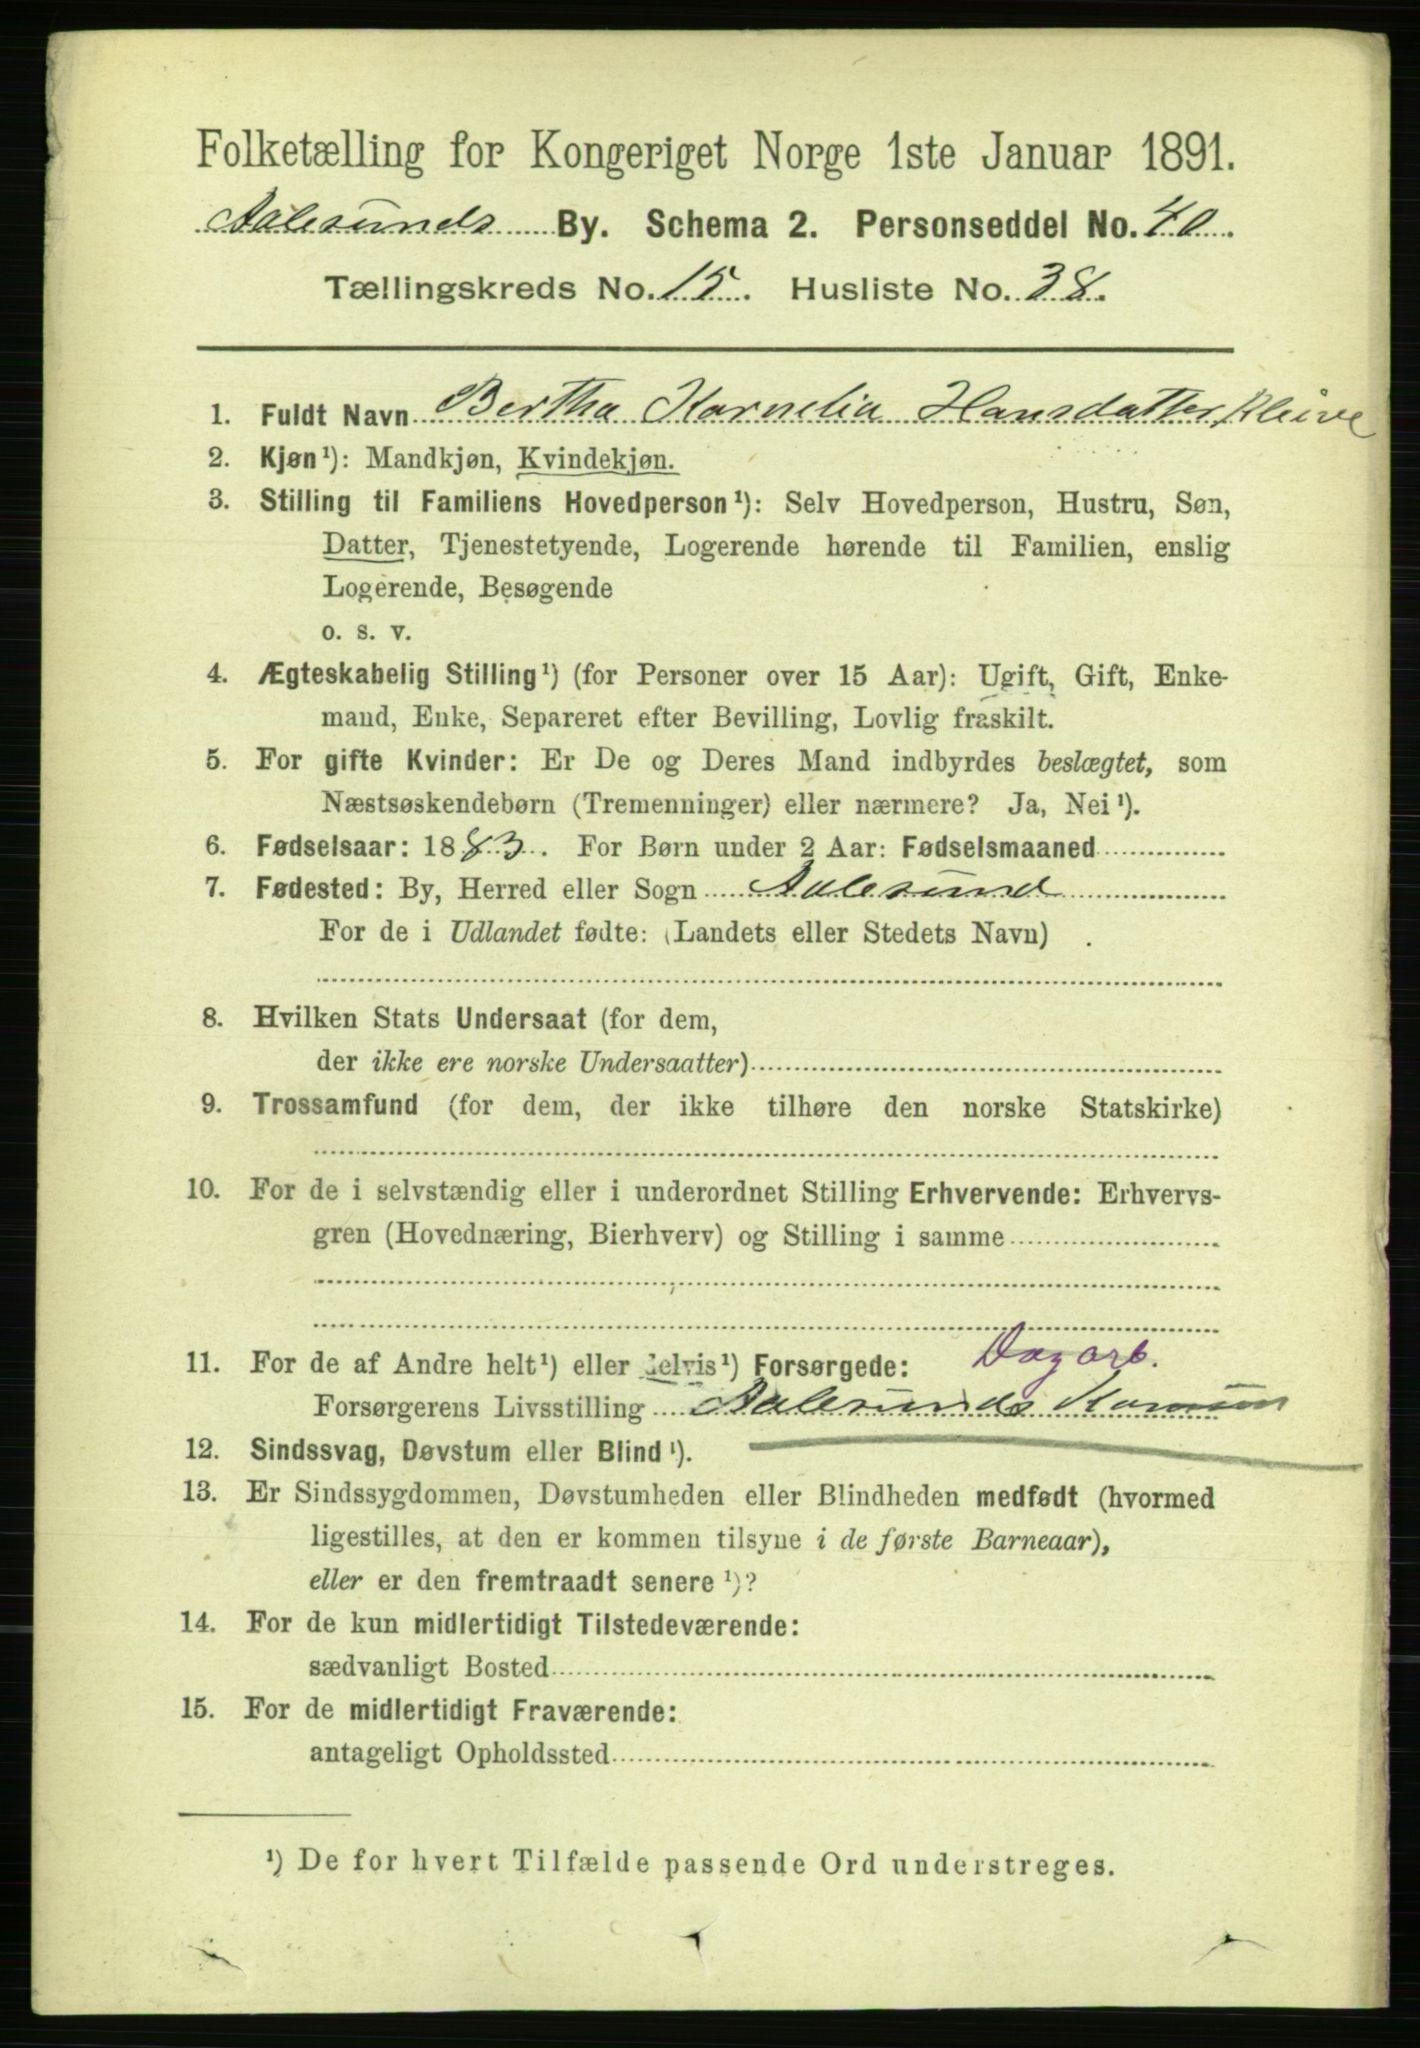 Folketælling for Kongeriget Norge 1ste Januar 1891.
Aalesunds By. Schema 2. Personseddel No. 40.
Tællingskreds No. 15. Husliste No. 38.
1. Fuldt Navn Bertha Karnelia Hansdatter Kleive
2. Kjøn¹): Mandkjøn, Kvindekjøn.
3. Stilling til Familiens Hovedperson¹): Selv Hovedperson, Hustru, Søn,
Datter, Tjenestetyende, Logerende hørende til Familien, enslig
Logerende, Besøgende
o. s. v.
4. Ægteskabelig Stilling¹) (for Personer over 15 Aar): Ugift, Gift, Enke-
mand, Enke, Separeret efter Bevilling, Lovlig fraskilt.
5. For gifte Kvinder: Er De og Deres Mand indbyrdes beslægtet, som
Næstsøskendebørn (Tremenninger) eller nærmere? Ja, Nei¹).
6. Fødselsaar: 1883. For Børn under 2 Aar: Fødselsmaaned
7. Fødested: By, Herred eller Sogn Aalesund
For de i Udlandet fødte: (Landets eller Stedets Navn)
8. Hvilken Stats Undersaat (for dem,
der ikke ere norske Undersaatter)
9. Trossamfund (for dem, der ikke tilhøre den norske Statskirke)
10. For de i selvstændig eller i underordnet Stilling Erhvervende: Erhvervs-
gren (Hovednæring, Bierhverv) og Stilling i samme
Dagarb.
11. For de af Andre helt¹) eller delvis¹) Forsørgede:
Forsørgerens Livsstilling Aalesunds Komun
12. Sindssvag, Døvstum eller Blind¹).
13. Er Sindssygdommen, Døvstumheden eller Blindheden medfødt (hvormed
ligestilles, at den er kommen tilsyne i de første Barneaar),
eller er den fremtraadt senere¹)?
14. For de kun midlertidigt Tilstedeværende:
sædvanligt Bosted
15. For de midlertidigt Fraværende:
antageligt Opholdssted
¹) De for hvert Tilfælde passende Ord understreges.